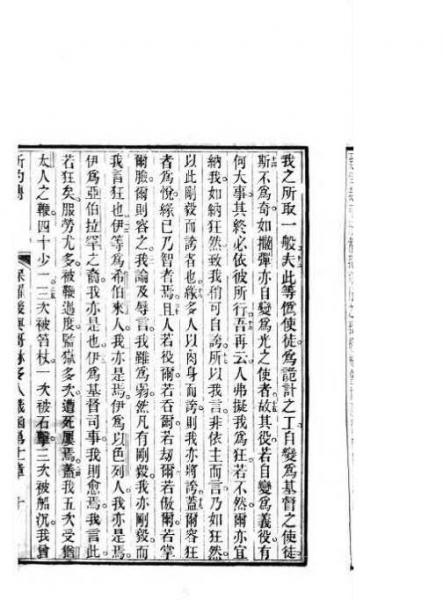 我之所取一般夫此等僞使徒爲詭計之工自變爲基督之使徒
斯不爲奇如㩜彈亦自變爲光之使者故其役若自變爲義役有
何大事其終必依彼所行吾再云人弗擬我爲狂若不然爾亦宜
納我如納狂然致我們可自誇所以我言非依主而言乃如狂然
以此剛毅而誇者也緣多人以肉身而誇則我亦將誇蓋爾容狂
者爲悅緣已乃智者焉且人若役爾若吞爾若刼爾若傲爾若掌
爾臉爾則容之我論及辱言我雖爲弱然凡有剛毅我亦剛毅而
我言狂也伊等爲希伯來人我亦是焉伊爲以色列人我亦是焉
伊爲亞伯拉罕之裔我亦是也伊爲基督司事我則愈焉我言此
若狂矣服勞尤多被鞭過度監獄多次遭死屢焉蓋我五次受
太人之鞭四十少一三次被笞杖一次被石擊三次被船沉我曾